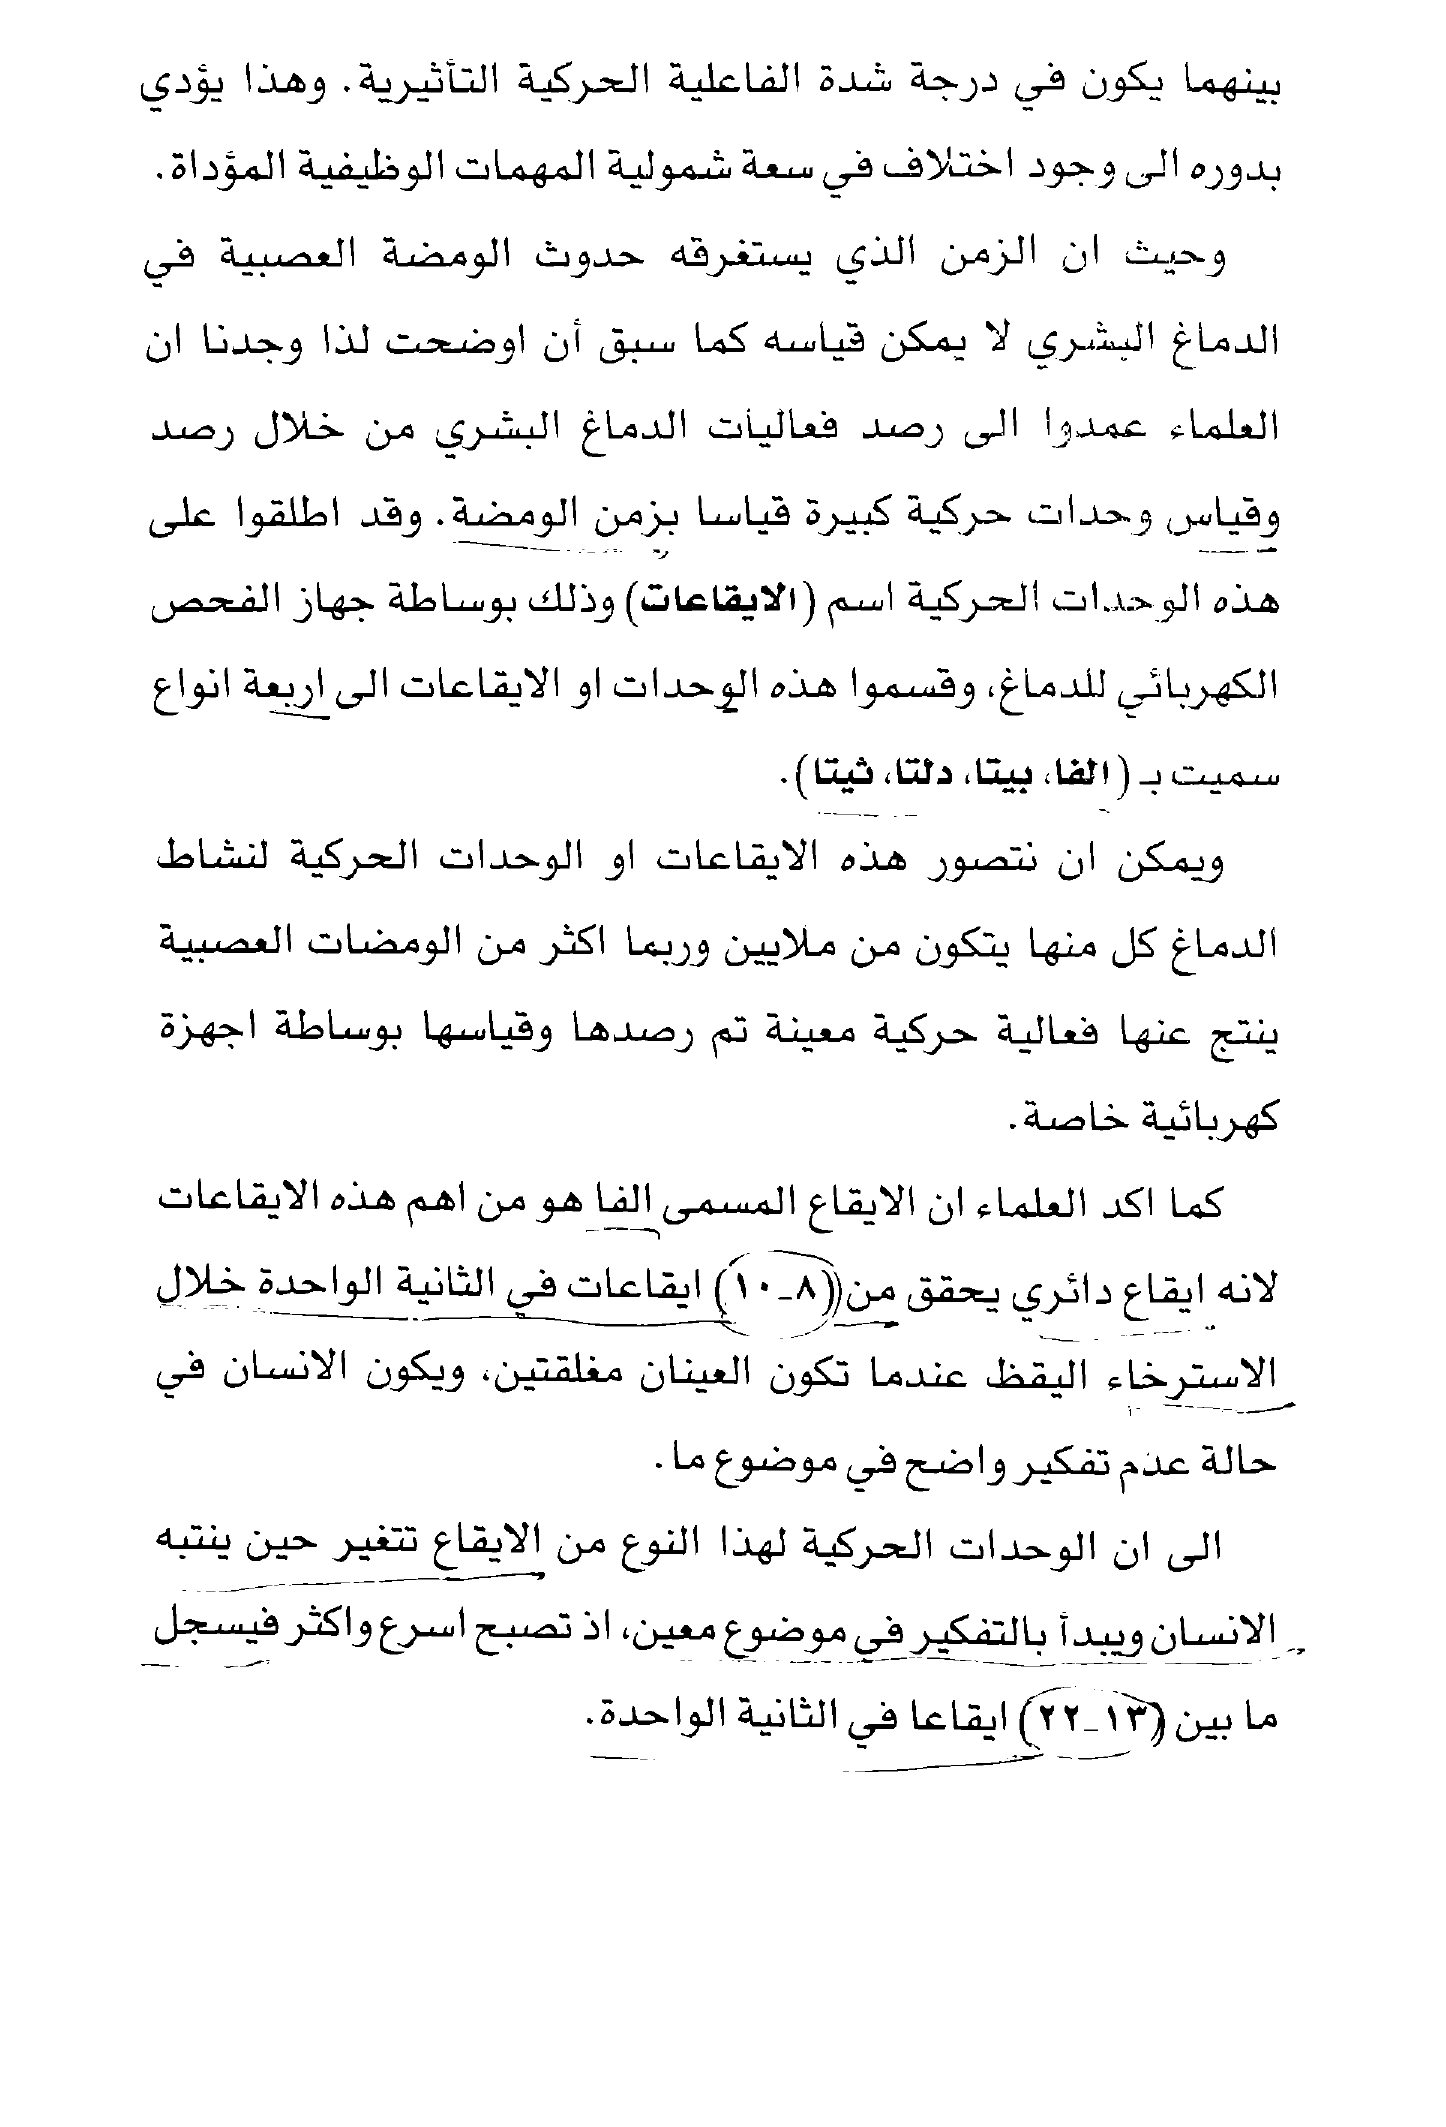 بينهما يكون في درجة شدة الفاعلية الحركية التأثيرية. وهذا يؤدي
بدوره الى وجود اختلاف في سعة شمولية المهمات الوظيفية المؤداة.
وحيث ان الزمن الذي يستغرقه حدوث الومضة العصبية في
الدماغ البشري لا يمكن قياسه كما سبق أن اوضحت لذا وجدنا ان
العلماء عمدوا الى رصد فعاليات الدماغ البشري من خلال رصد
وقياس وحدات حركية كبيرة قياسا بزمن الومضة. وقد اطلقوا على
هذه الوحدات الحركية اسم (الايقاعات) وذلك بوساطة جهاز الفحص
الكهربائي للدماغ، وقسموا هذه الوحدات او الايقاعات الى اربعة انواع
سميت بـ (الفا، بيتا، دلتا، ثيتا).
ويمكن ان نتصور هذه الايقاعات او الوحدات الحركية لنشاط
الدماغ كل منها يتكون من ملايين وربما اكثر من الومضات العصبية
ينتج عنها فعالية حركية معينة تم رصدها وقياسها بوساطة اجهزة
كهربائية خاصة.
كما اكد العلماء ان الايقاع المسمى الفا هو من اهم هذه الايقاعات
لانه ايقاع دائري يحقق من (٨_١٠) ايقاعات في الثانية الواحدة خلال
الاسترخاء اليقظ عندما تكون العينان مغلقتين، ويكون الانسان في
حالة عدم تفكير واضح في موضوع ما.
الى ان الوحدات الحركية لهذا النوع من الايقاع تتغير حين ينتبه
الانسان ويبدأ بالتفكير في موضوع معين، اذ تصبح اسرع واكثر فيسجل
ما بين (١٣_٢٢) ايقاعا في الثانية الواحدة.